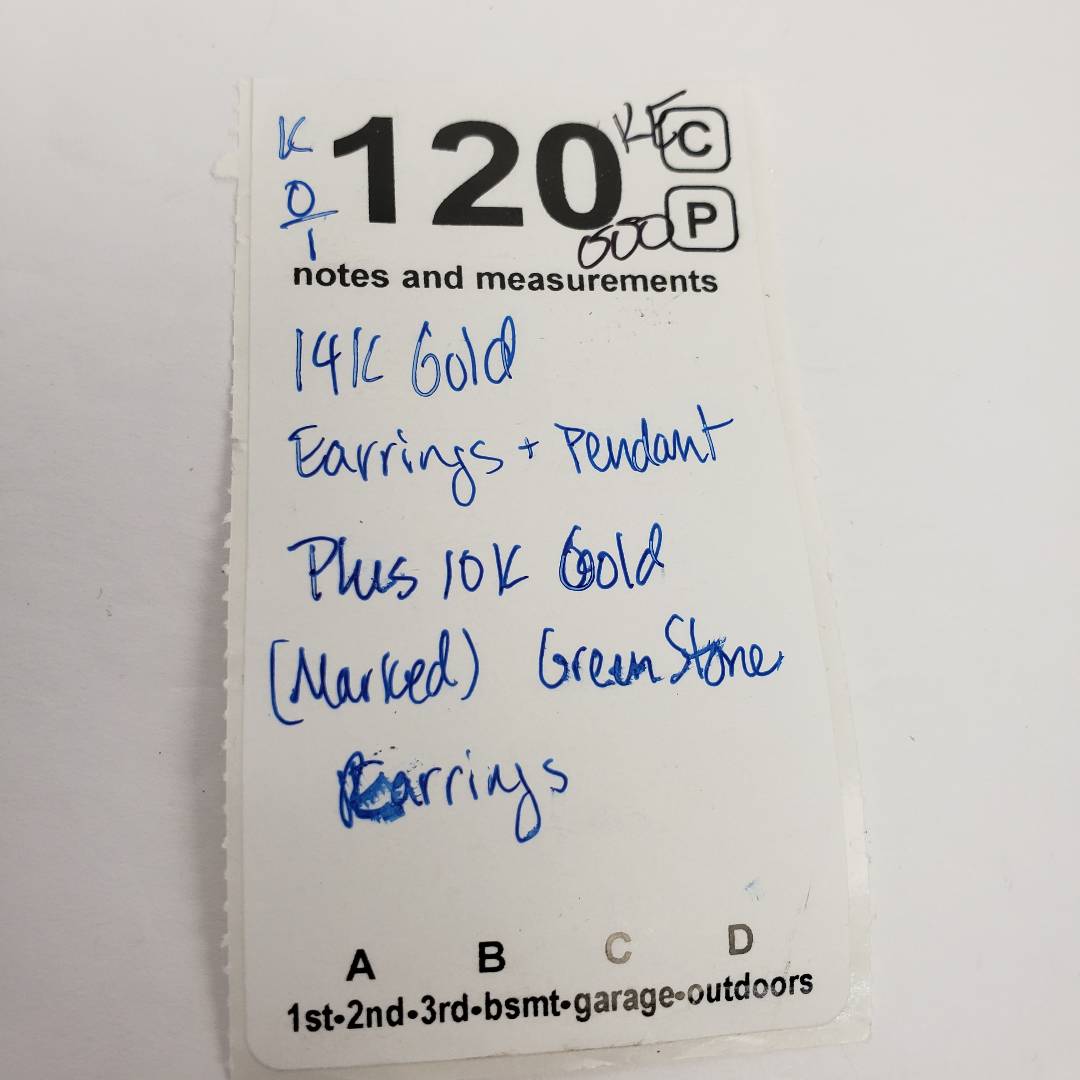 K
0
1
120
KE
C
P
000
notes and measurements
14K Gold
Earrings + Pendant
Plus 10K Gold
(Marked) Green Stone
Earrings
A B C D
1st-2nd-3rd-bsmt-garage-outdoors